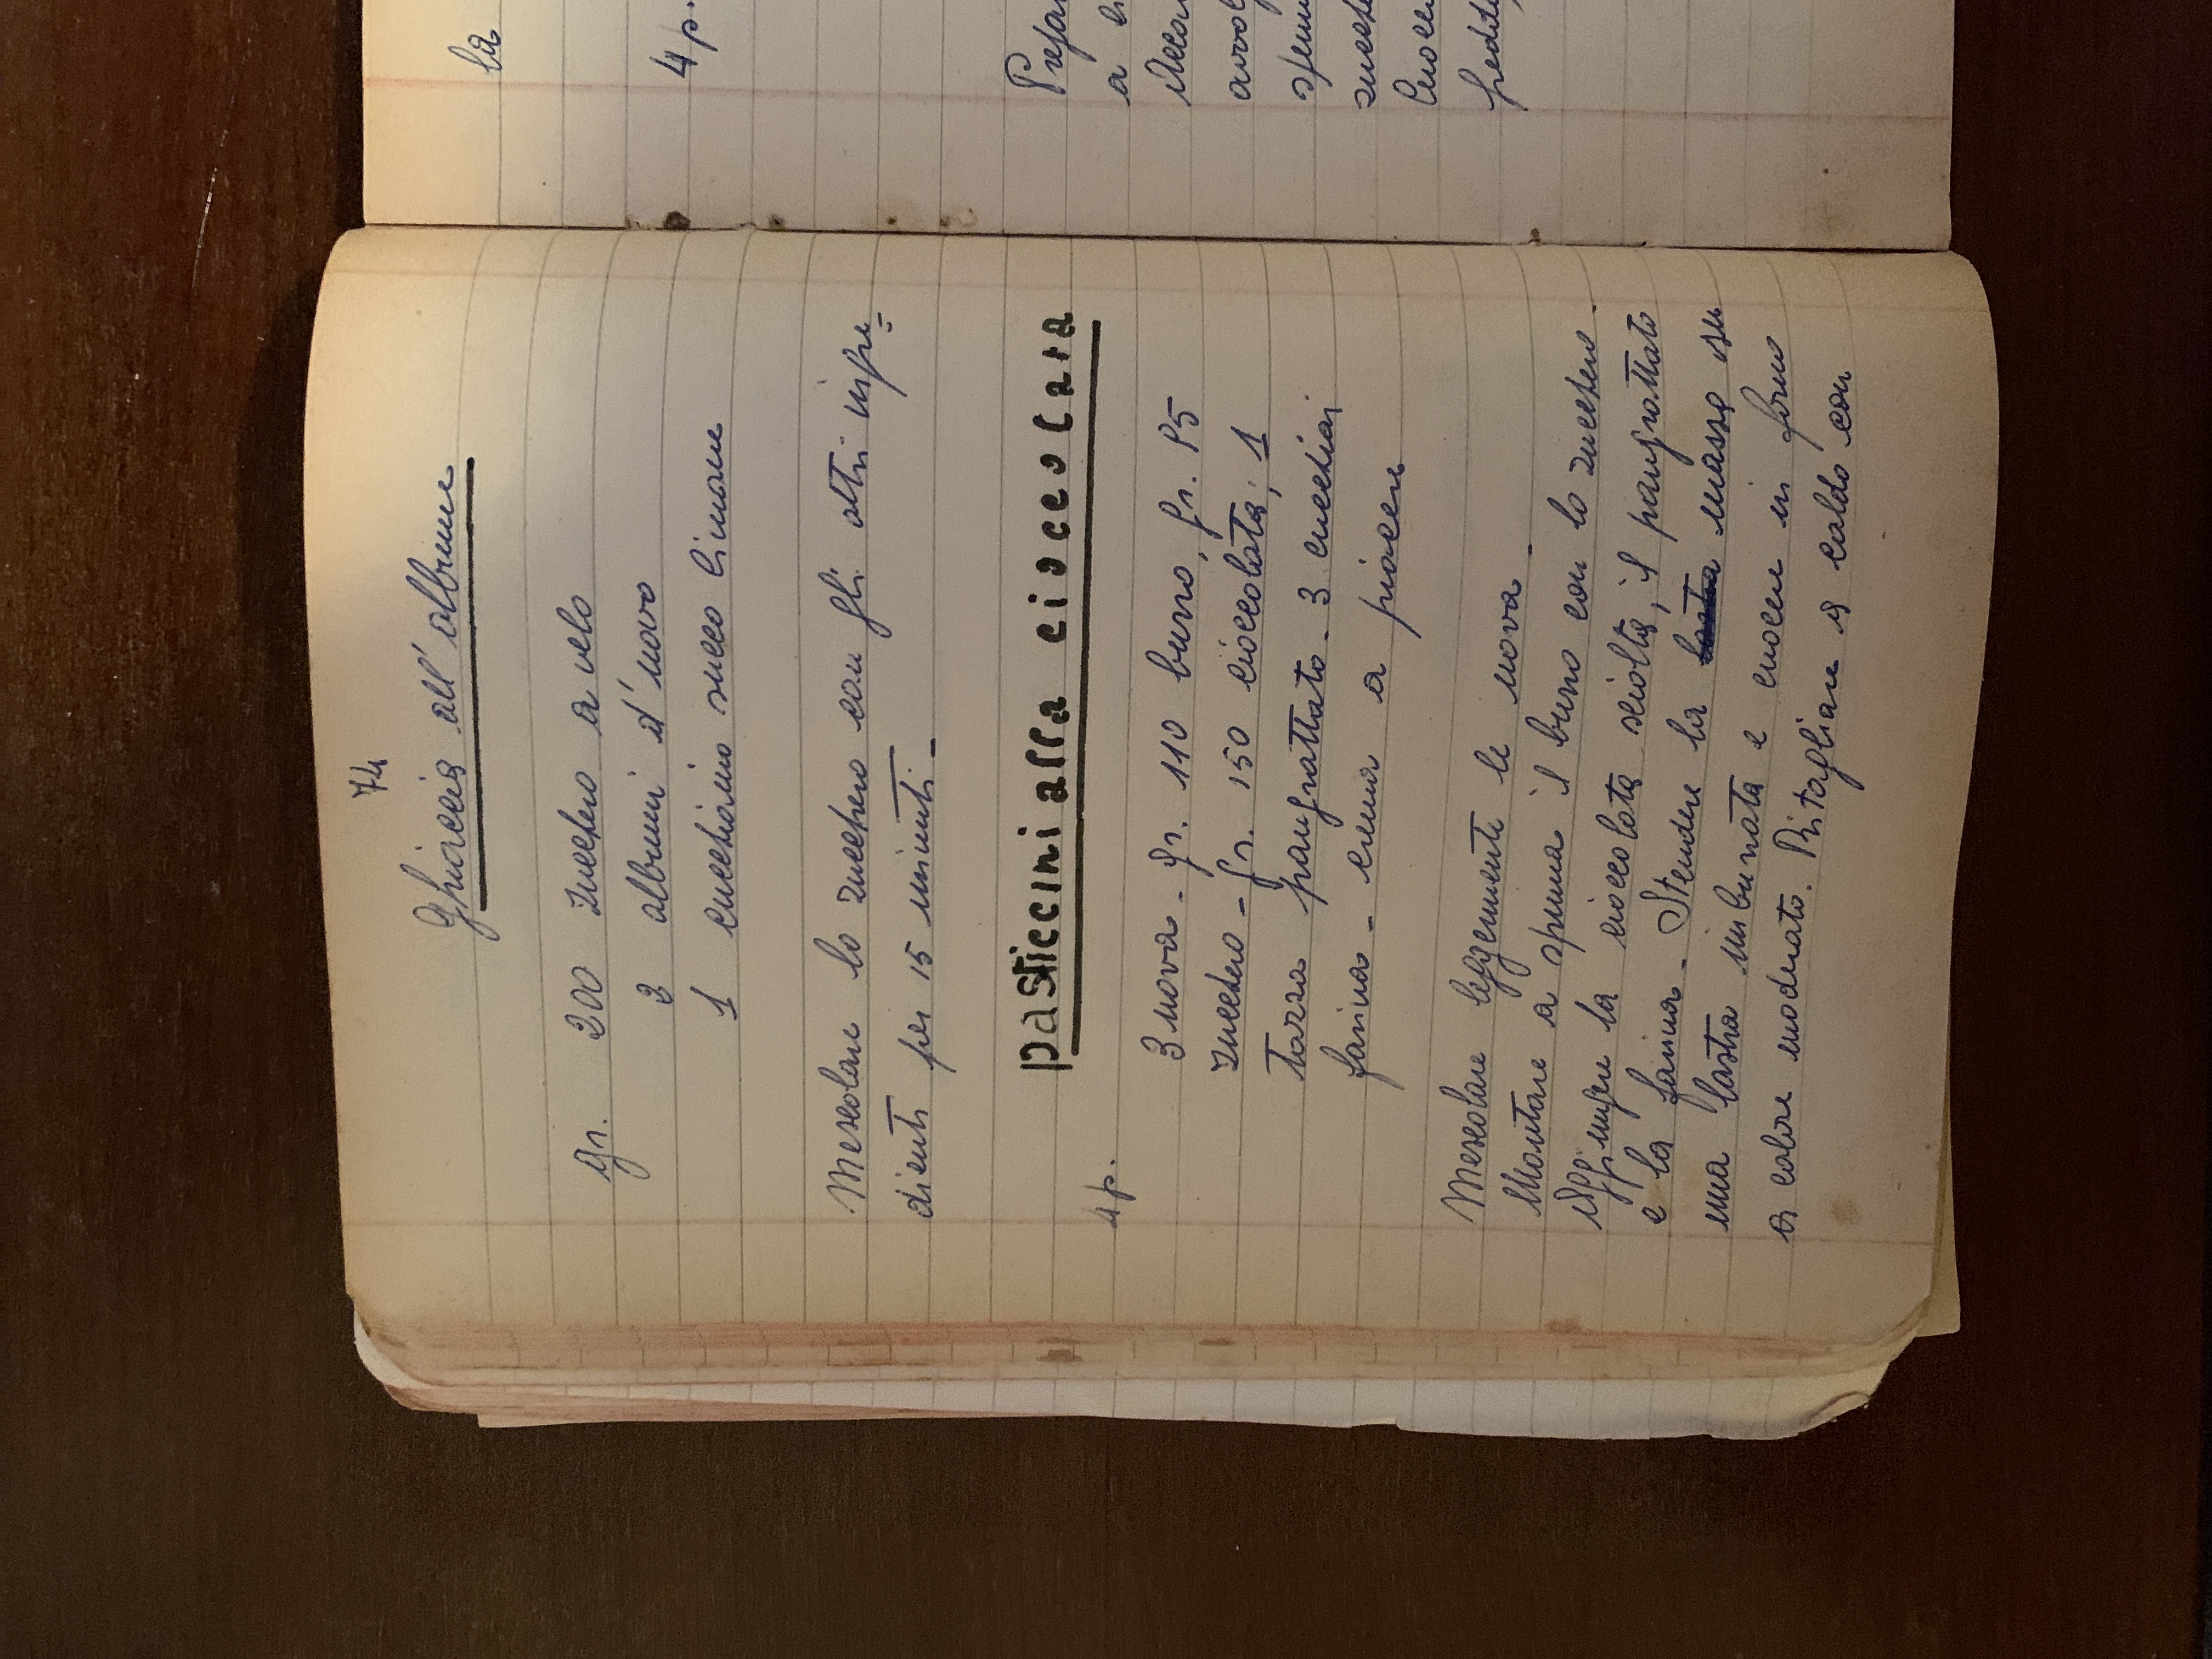 74
Ghiaccia all'albume
gr. 200 zucchero a velo
2 albumi d'uovo
1 cucchiaino succo limone
Mescolare lo zucchero con gli altri ingre=
dienti per 15 minuti -
pasticcini alla cioccolata
4 p.
3 uova - gr. 110 burro, gr. 85
zucchero - gr. 150 cioccolata; 1
tazza pangrattato - 3 cucchiai
farina - crema a piacere
Mescolare leggermente le uova -
Montare a spuma il burro con lo zucchero -
Aggiungere la cioccolata sciolta, il pangrattato
e la farina - Stendere la lastra massa su
una lastra imburrata e cuocere in forno
a calore moderato. Ritagliare a caldo con
la
4 p.
a